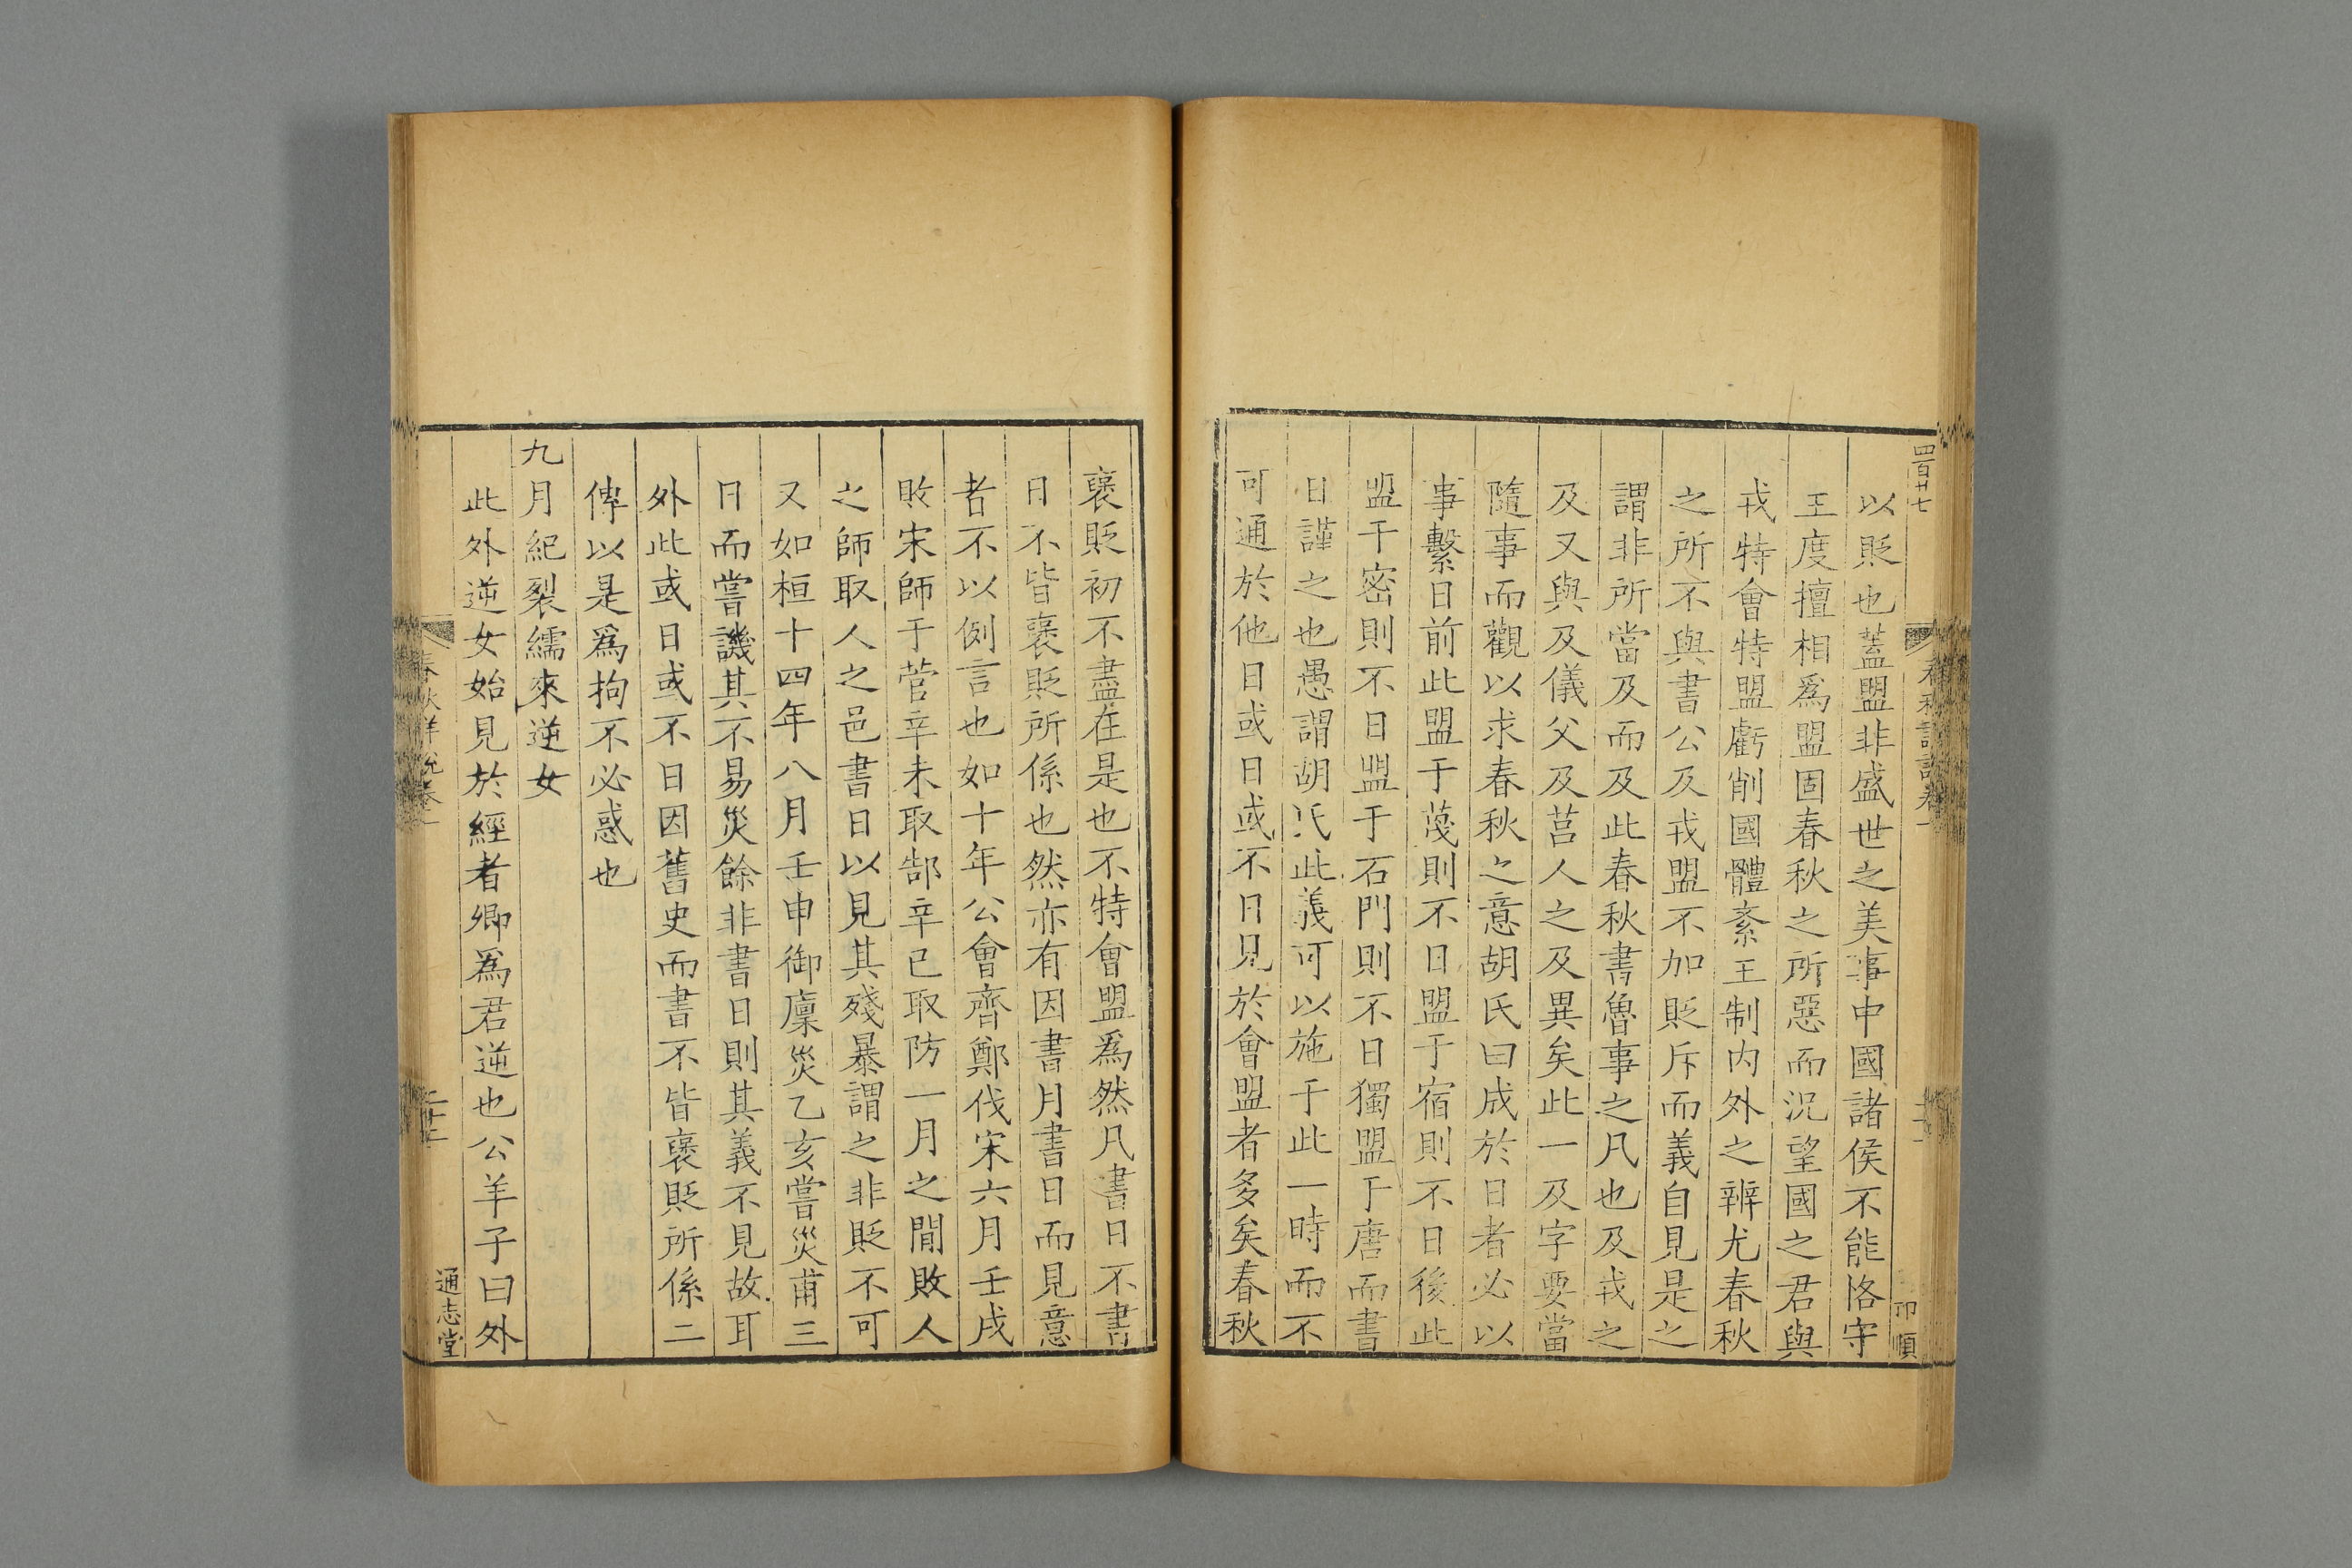 四百廿七
以貶也蓋盟非盛世之美事中國諸侯不能恪守
王度擅相爲盟固春秋之所惡而況望國之君與
戎特會特盟虧削國體紊王制内外之辨尤春秋
之所不與書公及戎盟不加貶斥而義自見是之
謂非所當及而及此春秋書魯事之凡也及戎之
及又與及儀父及莒人之及異矣此一及字要當
隨事而觀以求春秋之意胡氏曰成於日者必以
事繫日前此盟于蔑則不日盟于宿則不日後此
盟于密則不日盟于石門則不日獨盟于唐而書
日謹之也愚謂胡氏此義可以施于此一時而不
可通於他日或日或不日見於會盟者多矣春秋
褒貶初不盡在是也不特會盟爲然凡書日不書
日不皆褒貶所係也然亦有因書月書日而見意
者不以例言也如十年公會齊鄭伐宋六月壬戌
敗宋師于菅辛未取郜辛巳取防一月之間敗人
之師取人之邑書日以見其殘暴謂之非貶不可
又如桓十四年八月壬申御廩災乙亥嘗災甫三
日而嘗譏其不易災餘非書日則其義不見故耳
外此或日或不日因舊史而書不皆褒貶所係二
傳以是爲拘不必惑也
九月紀裂繻來逆女
此外逆女始見於經者卿爲君逆也公羊子曰外
春秋詳說卷一
通志堂